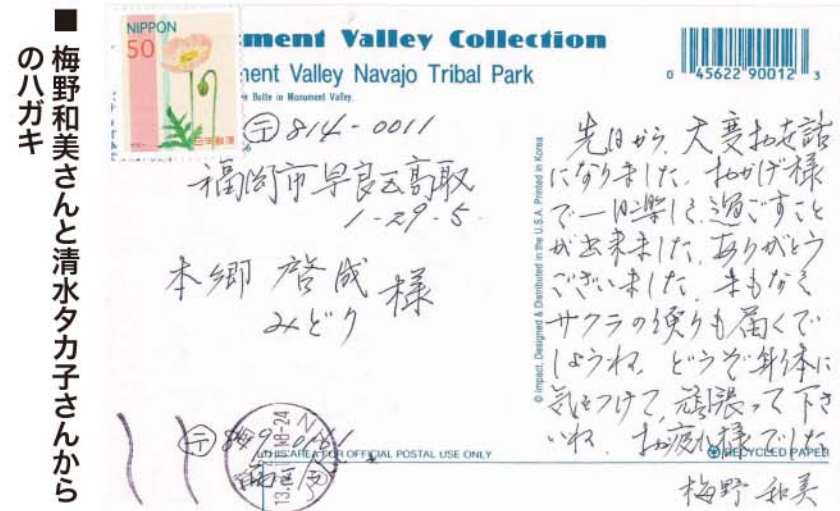 ■梅野和美さんと清水タカ子さんから
のハガキ
NIPPON
50
ment Valley Collection
ment Valley Navajo Tribal Park
Butte in Monument Valley.
0 45622 90012 3
〒814-0011
福岡市早良区高取
1-29-5
本郷 啓成 様
みどり
© Impact, Designed & Distributed in the U.S.A. Printed in Korea
先日から、大変お世話
になりました。おかげ様
で一日楽しく過ごすこと
が出来ました。ありがとう
ございました。まもなく
サクラの便りも届くで
しょうね。どうぞ身体に
気をつけて、頑張って下さ
いね。お疲れ様でした
梅野 和美
THIS AREA FOR OFFICIAL POSTAL USE ONLY
RECYCLED PAPER